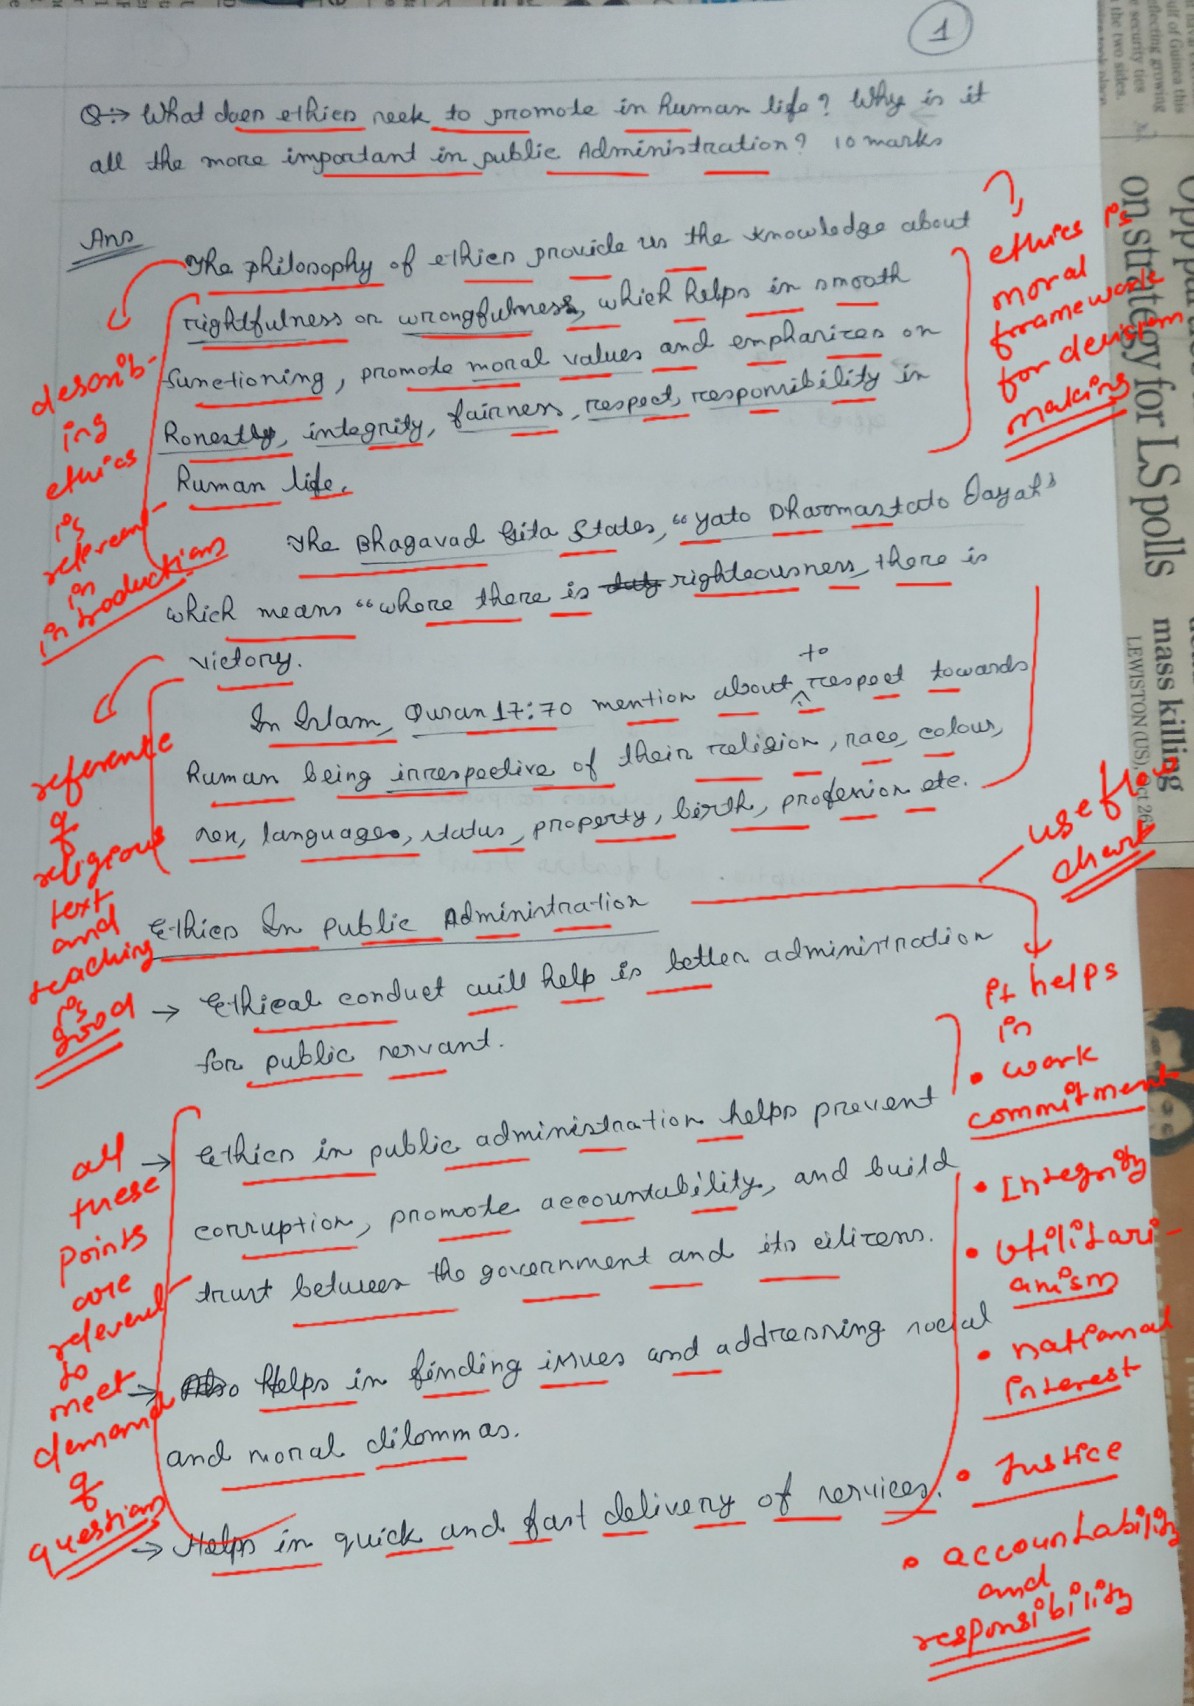 1
Q:→ What does ethics seek to promote in human life? Why is it
all the more important in public Administration? 10 marks
Ans
The philosophy of ethics provide us the knowledge about
rightfulness or wrongfulness, which helps in smooth
functioning, promote moral values and emphasizes on
Honestly, integrity, fairness, respect, responsibility in
human life.
The Bhagavad Gita States, "yato Dharmastato Jayah"
which means "where there is duty righteousness, there is
victory.
In Islam, Quran 17:70 mention about to respect towards
human being irrespective of their religion, race, colour,
sex, language, status, property, birth, profession etc.
Ethics In Public Administration
→ Ethical conduct will help is better administration
for public servant.
→ Ethics in public administration helps prevent
corruption, promote accountability, and build
trust between the government and its citizens.
→ Helps in finding issues and addressing social
and moral dilommas.
→ Helps in quick and fast delivery of services.
?,
ethics is
moral
framework
for decision
making
describ-
ing
ethics
is
relevent
in
introduction
reference
of
religious
text
and
teaching
is
good
use flow
chart
it helps
in
• work
commitment
• Integrity
• utilitari-
anism
• national
interest
• Justice
• accountability
and
responsibility
all
these
points
are
relevent
to
meet
demand
of
question
on strategy for LS polls
mass killing
LEWISTON (US), Oct 26
ulf of Guinea this
flecting growing
security ties
the two sides.